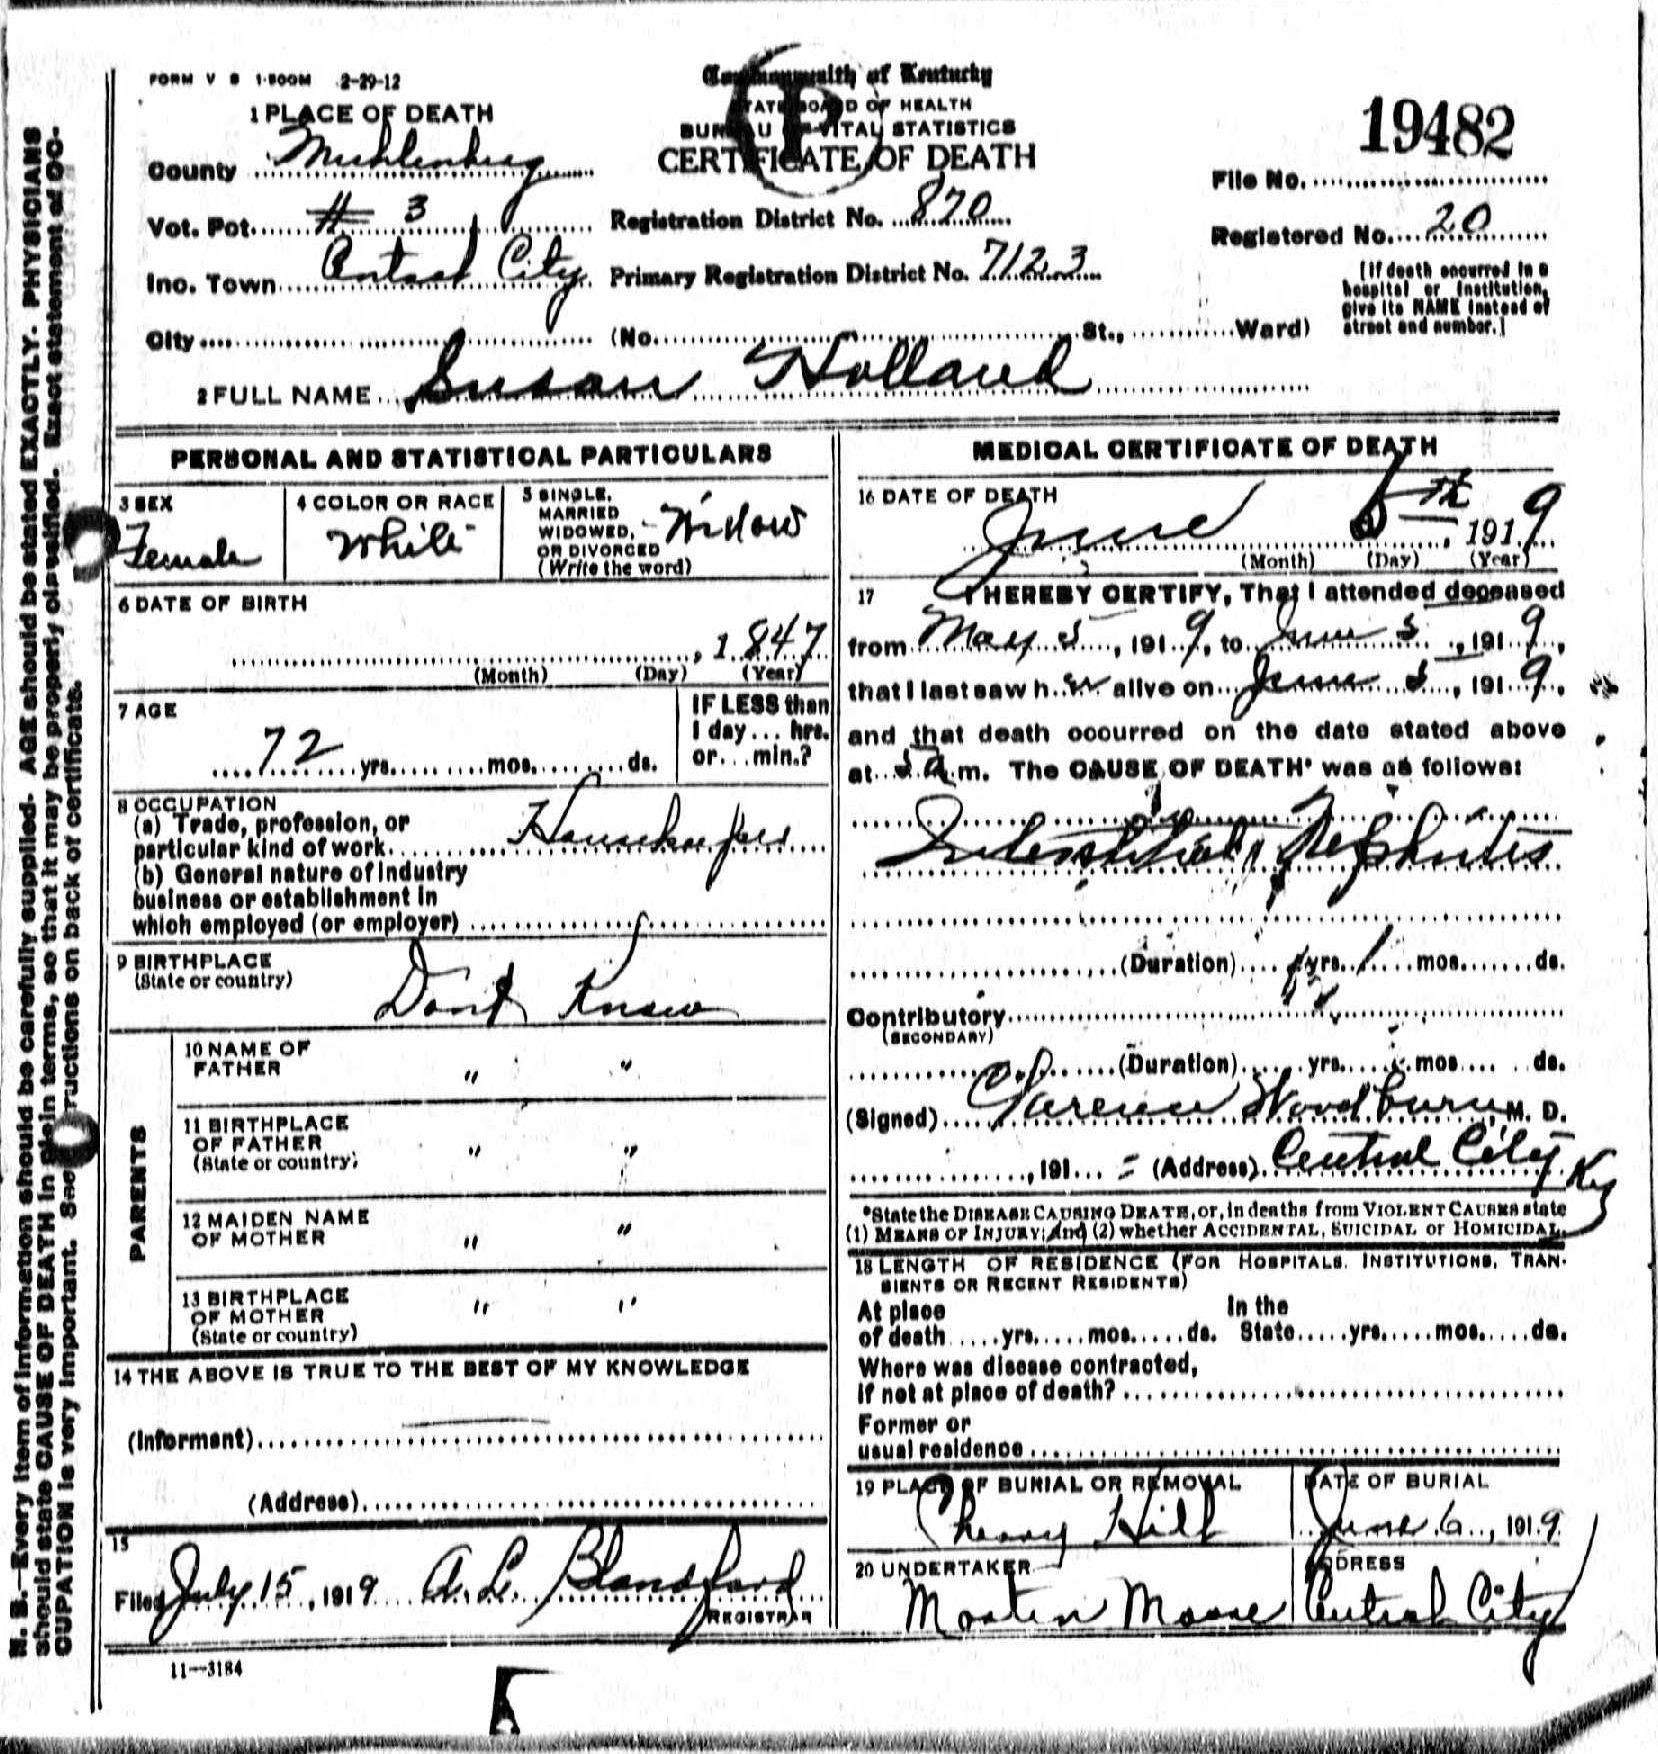 FORM V S 1-500M 2-29-12
Commonwealth of Kentucky
STATE BOARD OF HEALTH
BUREAU OF VITAL STATISTICS
CERTIFICATE OF DEATH
19482
1 PLACE OF DEATH
County Muhlenberg
File No.
Vot. Pct. # 3
Registration District No. 870
Registered No. 20
Ino. Town Central City
Primary Registration District No. 7123
[If death occurred in a
hospital or institution,
give its NAME instead of
street and number.]
City (No. St., Ward)
2 FULL NAME Susan Holland
PERSONAL AND STATISTICAL PARTICULARS
3 SEX
Female
4 COLOR OR RACE
White
5 SINGLE,
MARRIED
WIDOWED,
OR DIVORCED
(Write the word)
Widow
6 DATE OF BIRTH
, 1847
(Month) (Day) (Year)
7 AGE
72 yrs. mos. ds.
IF LESS than
1 day... hrs.
or... min.?
8 OCCUPATION
(a) Trade, profession, or
particular kind of work. Housekeeper
(b) General nature of industry
business or establishment in
which employed (or employer)
9 BIRTHPLACE
(State or country)
Dont Know
PARENTS
10 NAME OF
FATHER " "
11 BIRTHPLACE
OF FATHER
(State or country) " "
12 MAIDEN NAME
OF MOTHER " "
13 BIRTHPLACE
OF MOTHER
(State or country) " "
14 THE ABOVE IS TRUE TO THE BEST OF MY KNOWLEDGE
(Informant)
(Address)
15
Filed July 15, 1919 A. L. Blandford
REGISTRAR
11-3184
MEDICAL CERTIFICATE OF DEATH
16 DATE OF DEATH
June 5th, 1919
(Month) (Day) (Year)
17 I HEREBY CERTIFY, That I attended deceased
from May 5, 1919, to June 5, 1919,
that I last saw her alive on June 5, 1919,
and that death occurred on the date stated above
at a.m. The CAUSE OF DEATH* was as follows:
Interstitial Nephritis
(Duration) yrs. 1 mos. ds.
Contributory
(SECONDARY)
(Duration) yrs. mos. ds.
(Signed) Clarence Woodburn, M. D.
, 191 (Address) Central City Ky
*State the DISEASE CAUSING DEATH, or, in deaths from VIOLENT CAUSES state
(1) MEANS OF INJURY; and (2) whether ACCIDENTAL, SUICIDAL or HOMICIDAL.
18 LENGTH OF RESIDENCE (FOR HOSPITALS, INSTITUTIONS, TRAN-
SIENTS OR RECENT RESIDENTS)
At place In the
of death yrs. mos. ds. State yrs. mos. ds.
Where was disease contracted,
if not at place of death?
Former or
usual residence
19 PLACE OF BURIAL OR REMOVAL
Cherry Hill
DATE OF BURIAL
June 6, 1919
20 UNDERTAKER
Morten Moore
ADDRESS
Central City
N. B.—Every item of information should be carefully supplied. AGE should be stated EXACTLY. PHYSICIANS
should state CAUSE OF DEATH in plain terms, so that it may be properly classified. Exact statement of OC-
CUPATION is very important. See instructions on back of certificate.